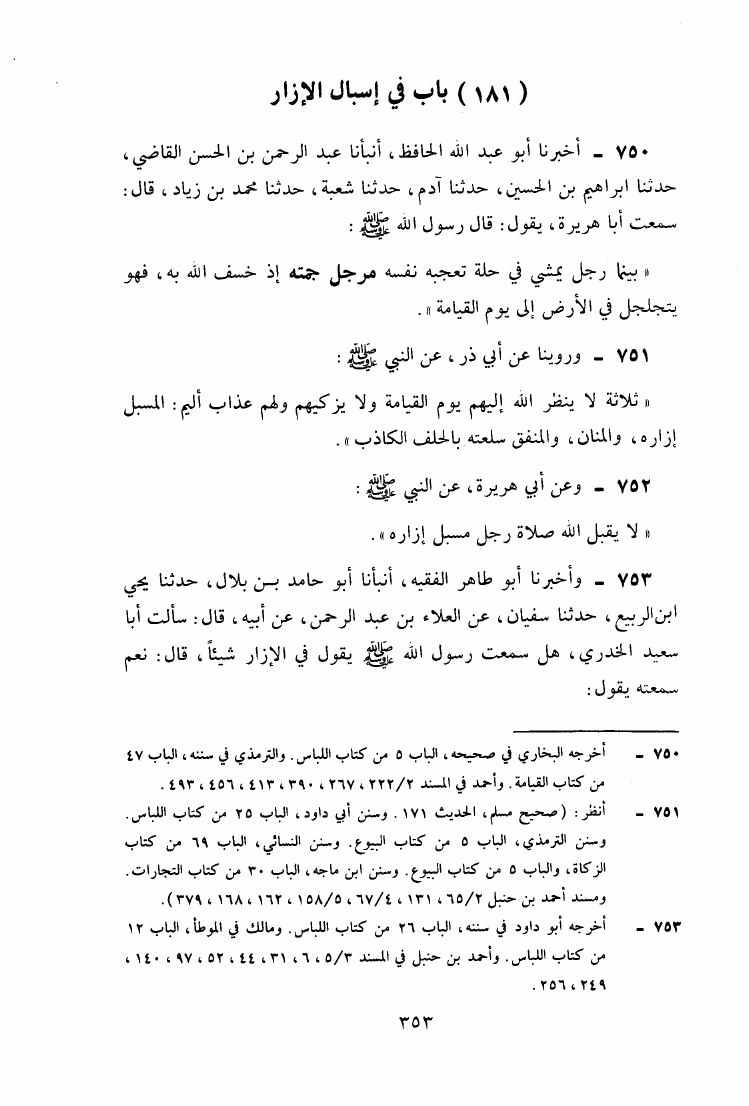 ( ١٨١ ) باب في إسبال الإزار
٧٥٠ ـ أخبرنا أبو عبد الله الحافظ، أنبأنا عبد الرحمن بن الحسن القاضي،
حدثنا ابراهيم بن الحسين، حدثنا آدم، حدثنا شعبة، حدثنا محمد بن زياد، قال:
سمعت أبا هريرة، يقول: قال رسول الله ﷺ :
« بينما رجل يمشي في حلة تعجبه نفسه مرجل جمته إذ خسف الله به، فهو
يتجلجل في الأرض إلى يوم القيامة ».
٧٥١ ـ وروينا عن أبي ذر، عن النبي ﷺ :
« ثلاثة لا ينظر الله إليهم يوم القيامة ولا يزكيهم ولهم عذاب أليم: المسبل
إزاره، والمنان، والمنفق سلعته بالحلف الكاذب ».
٧٥٢ ـ وعن أبي هريرة، عن النبي ﷺ :
« لا يقبل الله صلاة رجل مسبل إزاره ».
٧٥٣ ـ وأخبرنا أبو طاهر الفقيه، أنبأنا أبو حامد بن بلال، حدثنا يحي
ابن الربيع، حدثنا سفيان، عن العلاء بن عبد الرحمن، عن أبيه، قال: سألت أبا
سعيد الخدري، هل سمعت رسول الله ﷺ يقول في الإزار شيئاً، قال: نعم
سمعته يقول:
٧٥٠ ـ أخرجه البخاري في صحيحه، الباب ٥ من كتاب اللباس. والترمذي في سننه، الباب ٤٧
من كتاب القيامة. وأحمد في المسند ٢٢٢/٢ ، ٢٦٧ ، ٣٩٠ ، ٤١٣ ، ٤٥٦ ، ٤٩٣ .
٧٥١ ـ أنظر: (صحيح مسلم، الحديث ١٧١ . وسنن أبي داود، الباب ٢٥ من كتاب اللباس.
وسنن الترمذي، الباب ٥ من كتاب البيوع. وسنن النسائي، الباب ٦٩ من كتاب
الزكاة، والباب ٥ من كتاب البيوع. وسنن ابن ماجه، الباب ٣٠ من كتاب التجارات.
ومسند أحمد بن حنبل ٦٥/٢ ، ١٣١ ، ٦٧/٤ ، ١٥٨/٥ ، ١٦٢ ، ١٦٨ ، ٣٧٩).
٧٥٣ ـ أخرجه أبو داود في سننه، الباب ٢٦ من كتاب اللباس. ومالك في الموطأ، الباب ١٢
من كتاب اللباس. وأحمد بن حنبل في المسند ٥/٣ ، ٦ ، ٣١ ، ٤٤ ، ٥٢ ، ٩٧ ، ١٤٠ ،
٢٤٩ ، ٢٥٦ .
٣٥٣